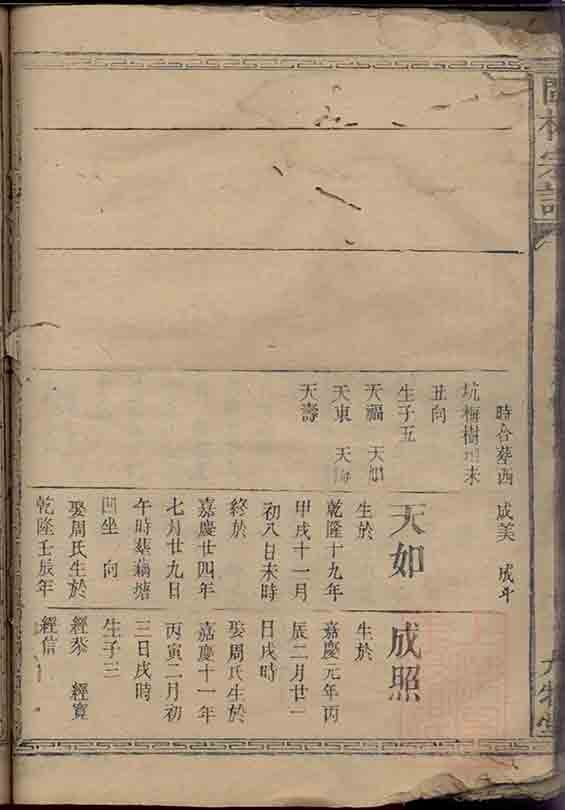 宗譜
時合葬西
坑梅樹坦未
丑向
生子五
天福 天
天東 天
天壽
成美 成斗
天如
生於
乾隆十九年
甲戌十一月
初八日未時
終於
嘉慶廿四年
七月廿九日
午時葬藕塘
凹坐 向
娶周氏生於
乾隆壬辰年
成照
生於
嘉慶元年丙
辰二月廿一
日戌時
娶周氏生於
嘉慶十一年
丙寅二月初
三日戌時
生子三
經泰 經寬
經信